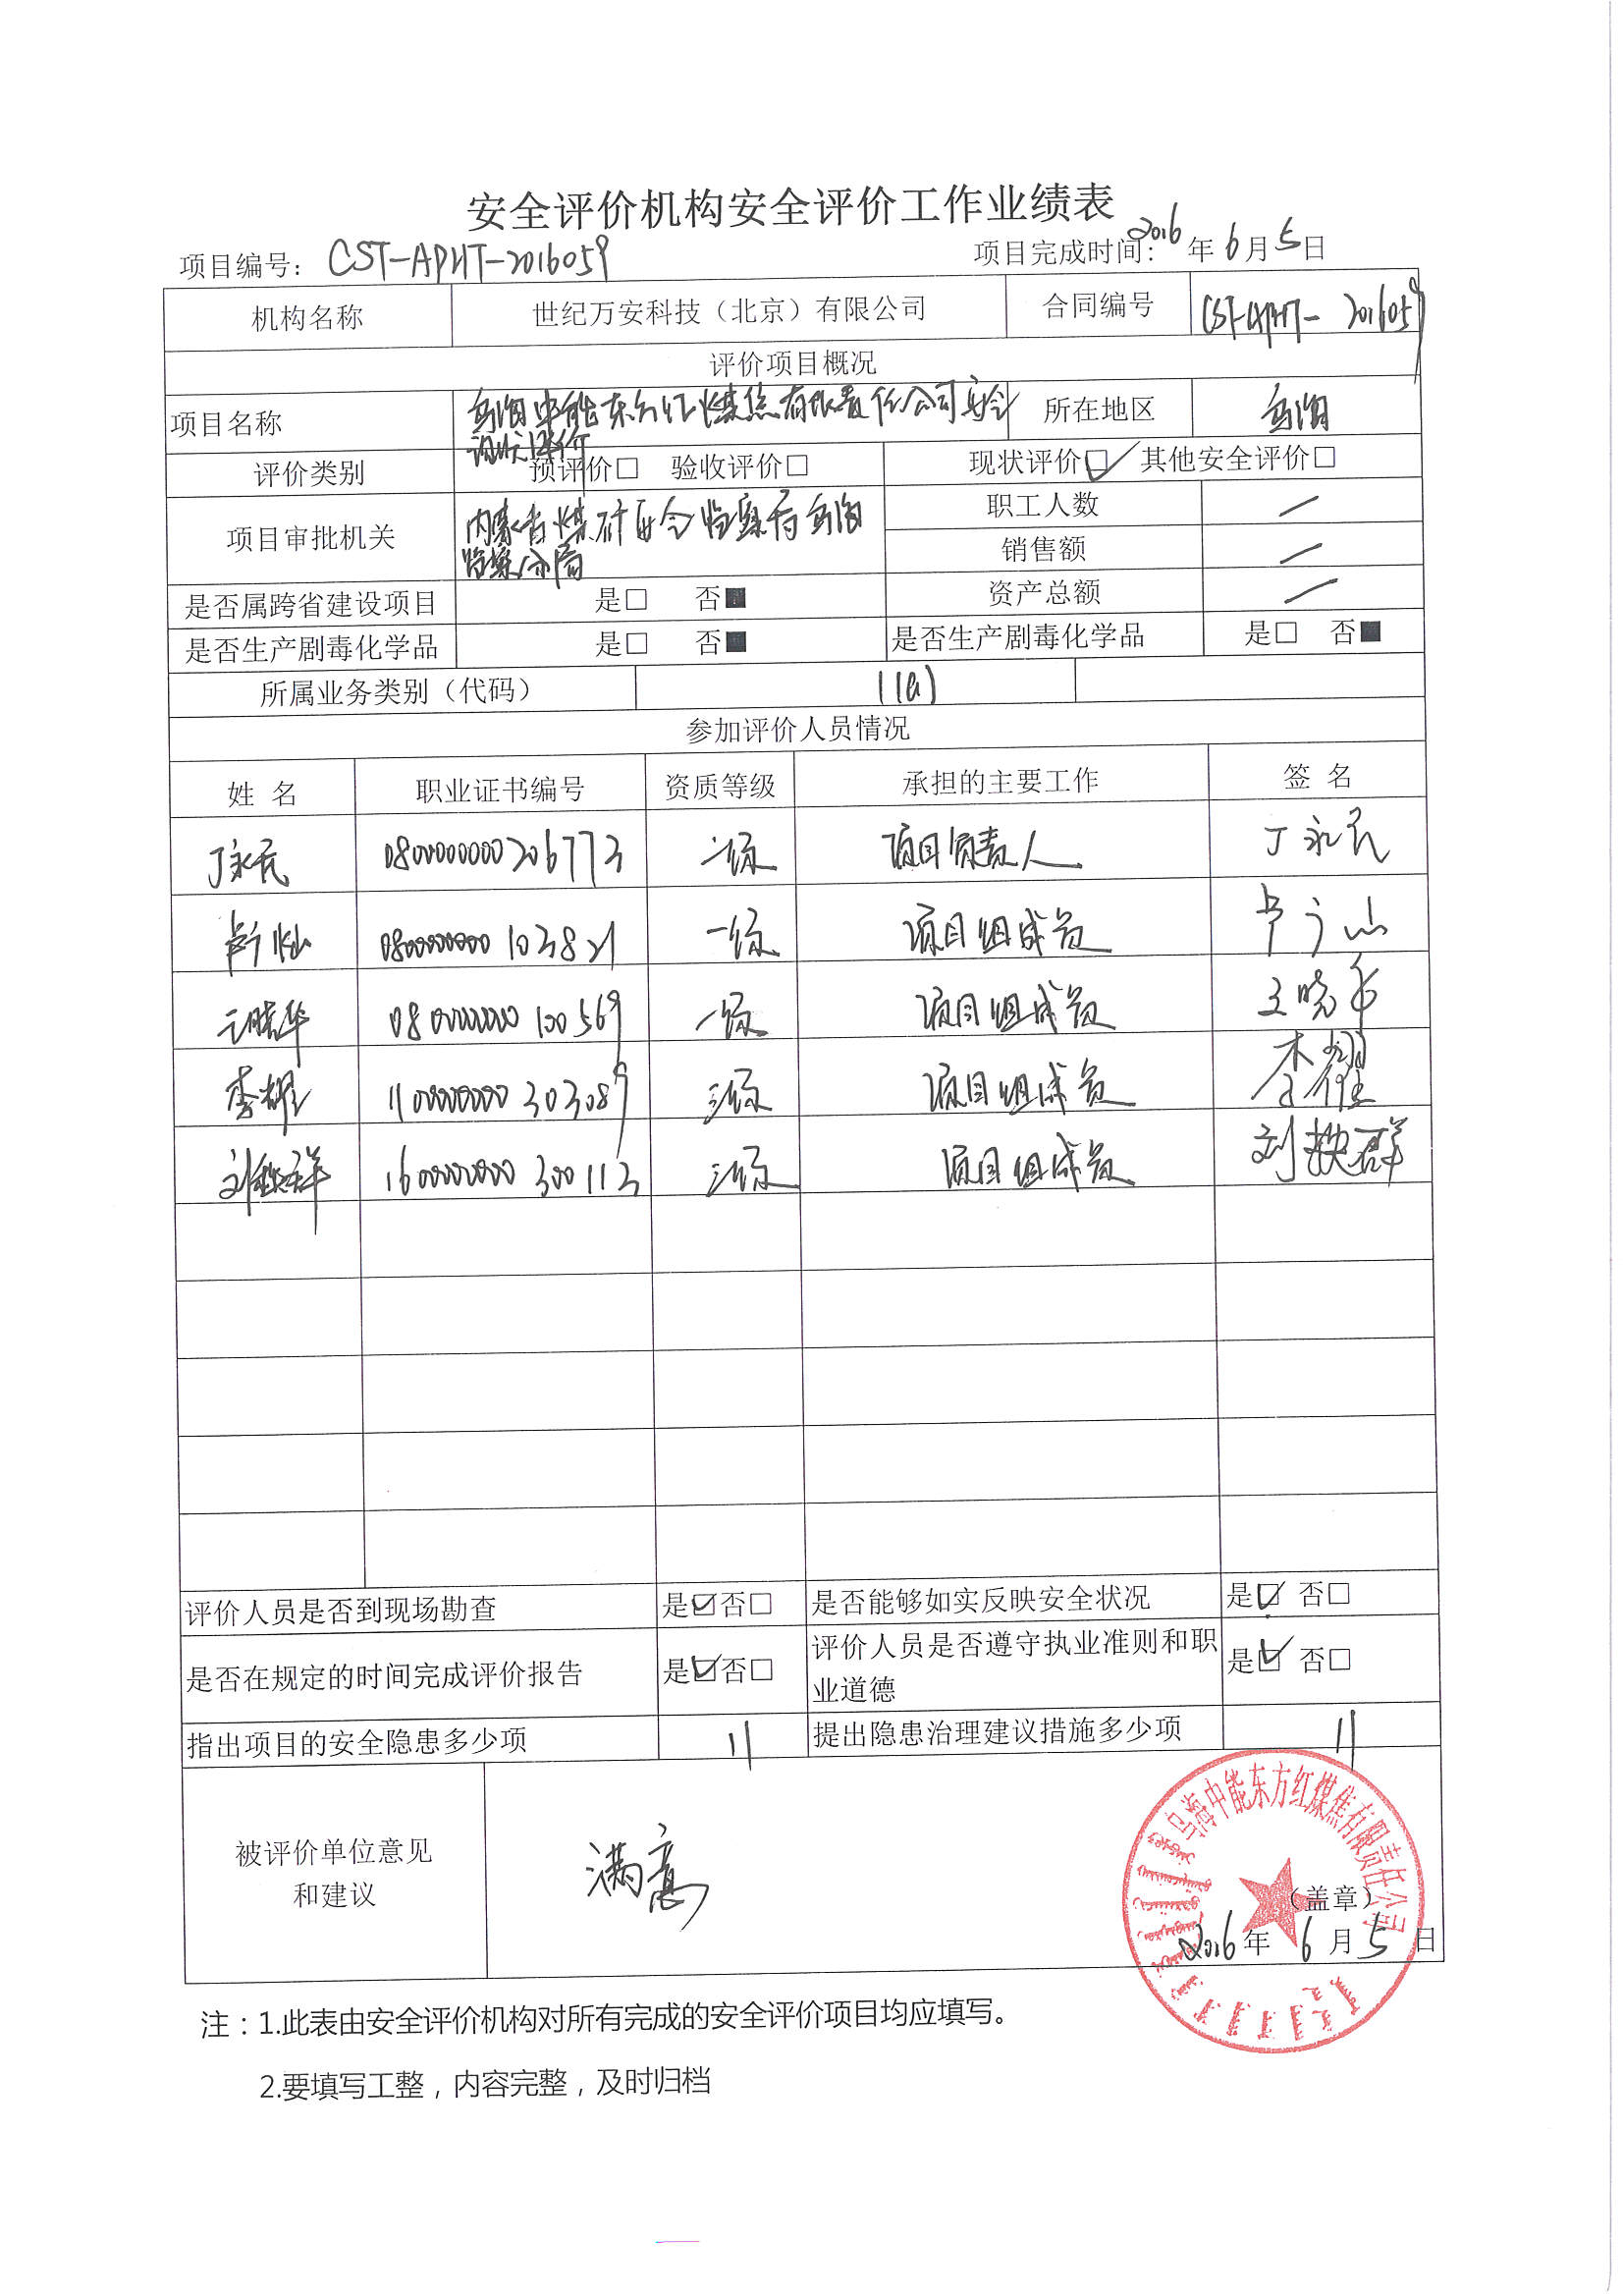 安全评价机构安全评价工作业绩表
项目编号： CST-APHT-2016059 项目完成时间： 2016 年 6 月 5 日
机构名称 世纪万安科技（北京）有限公司 合同编号 CST-APHT-2016059
评价项目概况
项目名称 乌海中能东方红煤焦有限责任公司安全 所在地区 乌海
现状评价
评价类别 预评价□ 验收评价□ 现状评价☑ 其他安全评价□
项目审批机关 内蒙古煤矿安全监察局乌海 职工人数 /
监察分局 销售额 /
是否属跨省建设项目 是□ 否■ 资产总额 /
是否生产剧毒化学品 是□ 否■ 是否生产剧毒化学品 是□ 否■
所属业务类别（代码）
参加评价人员情况
姓 名 职业证书编号 资质等级 承担的主要工作 签 名
丁永民 0800000000206773 二级 项目负责人 丁永民
0800000000103821 一级 项目组成员
王晓华 0800000000100569 一级 项目组成员 王晓华
李耀 1100000000303089 三级 项目组成员 李耀
1600000000300113 三级 项目组成员
评价人员是否到现场勘查 是☑否□ 是否能够如实反映安全状况 是☑ 否□
是否在规定的时间完成评价报告 是☑否□ 评价人员是否遵守执业准则和职 是☑ 否□
业道德
指出项目的安全隐患多少项 11 提出隐患治理建议措施多少项 11
被评价单位意见
和建议
满意
乌海中能东方红煤焦有限责任公司
（盖章）
2016 年 6 月 5 日
注：1.此表由安全评价机构对所有完成的安全评价项目均应填写。
2.要填写工整，内容完整，及时归档